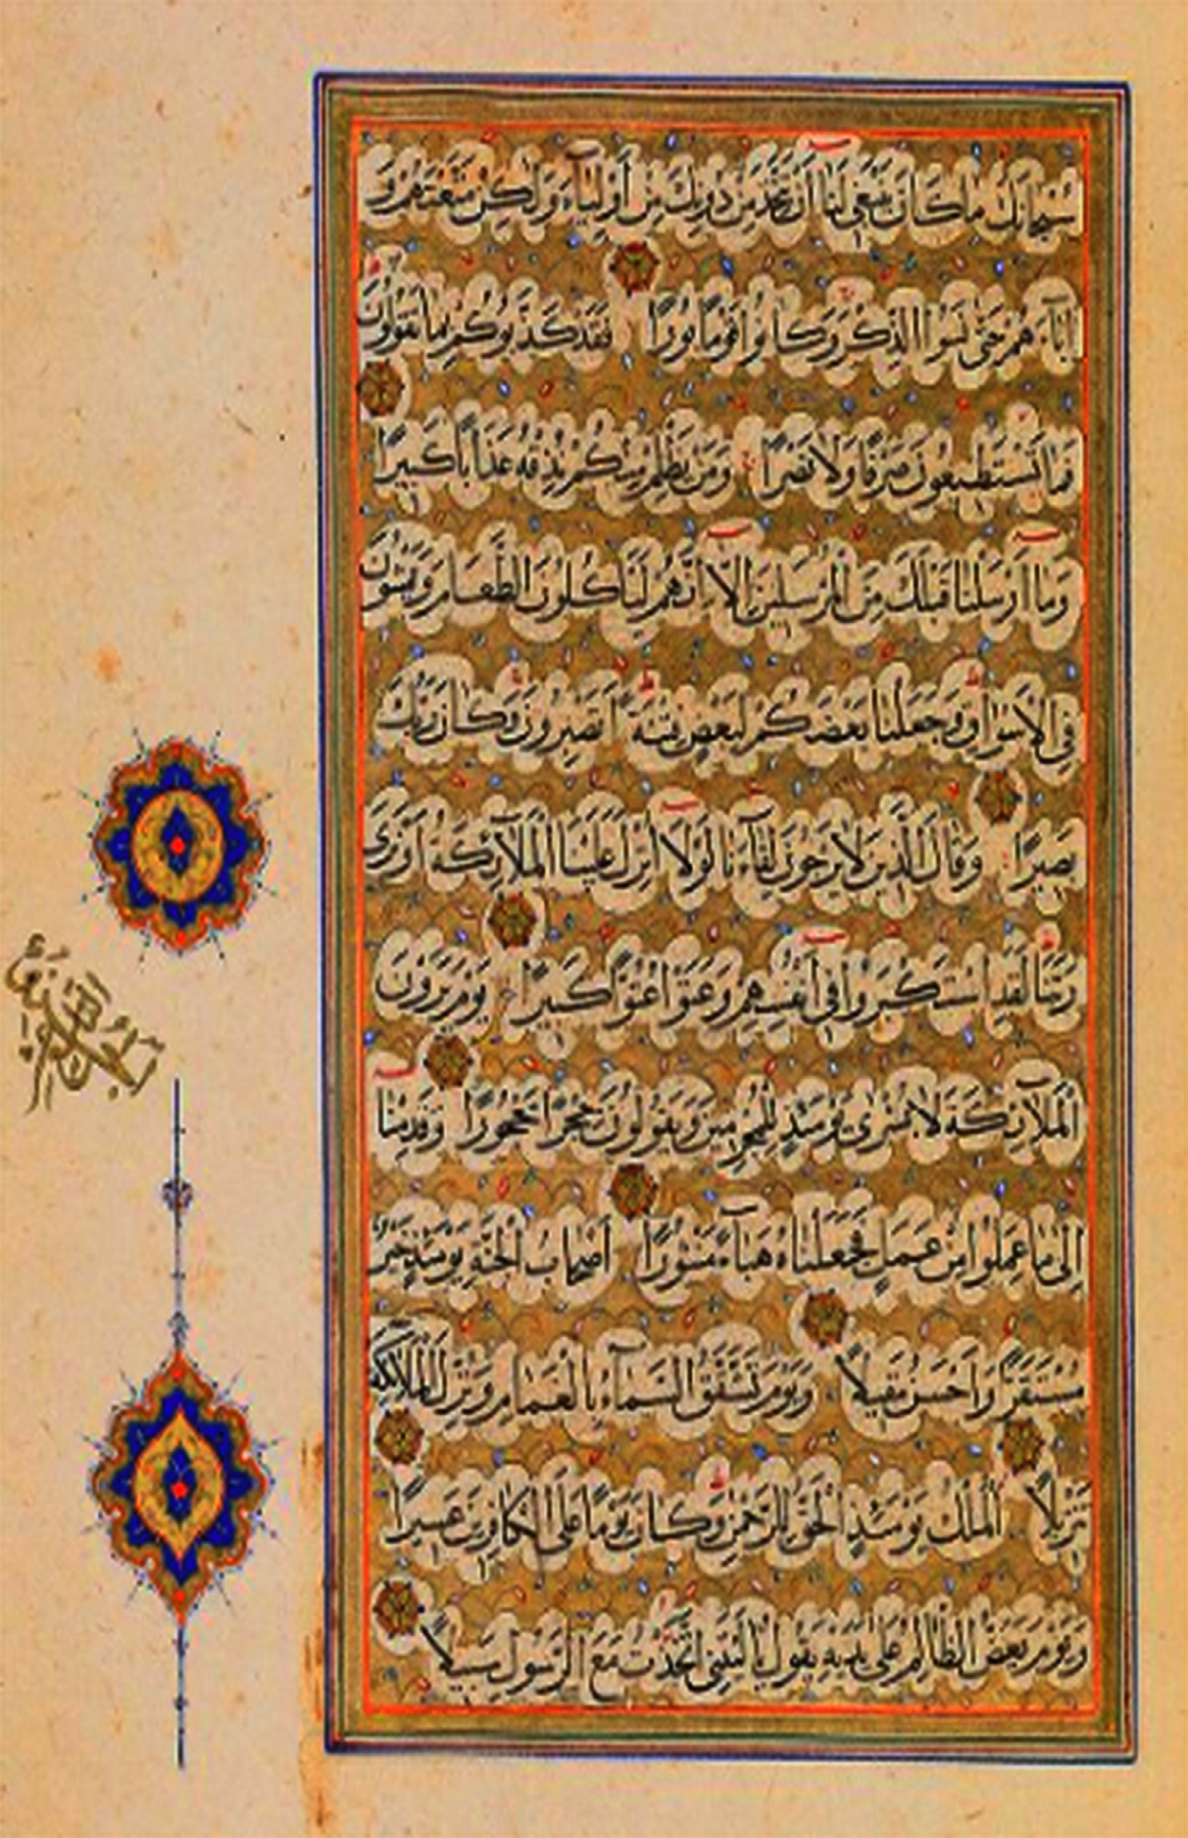 سُبْحَانَكَ مَا كَانَ يَنْبَغِي لَنَا أَنْ نَتَّخِذَ مِنْ دُونِكَ مِنْ أَوْلِيَاءَ وَلَكِنْ مَتَّعْتَهُمْ وَ
آبَاءَهُمْ حَتَّى نَسُوا الذِّكْرَ وَكَانُوا قَوْمًا بُورًا فَقَدْ كَذَّبُوكُمْ بِمَا تَقُولُونَ
فَمَا تَسْتَطِيعُونَ صَرْفًا وَلَا نَصْرًا وَمَنْ يَظْلِمْ مِنْكُمْ نُذِقْهُ عَذَابًا كَبِيرًا
وَمَا أَرْسَلْنَا قَبْلَكَ مِنَ الْمُرْسَلِينَ إِلَّا إِنَّهُمْ لَيَأْكُلُونَ الطَّعَامَ وَيَمْشُونَ
فِي الْأَسْوَاقِ وَجَعَلْنَا بَعْضَكُمْ لِبَعْضٍ فِتْنَةً أَتَصْبِرُونَ وَكَانَ رَبُّكَ
بَصِيرًا وَقَالَ الَّذِينَ لَا يَرْجُونَ لِقَاءَنَا لَوْلَا أُنْزِلَ عَلَيْنَا الْمَلَائِكَةُ أَوْ نَرَى
رَبَّنَا لَقَدِ اسْتَكْبَرُوا فِي أَنْفُسِهِمْ وَعَتَوْا عُتُوًّا كَبِيرًا يَوْمَ يَرَوْنَ
الْمَلَائِكَةَ لَا بُشْرَى يَوْمَئِذٍ لِلْمُجْرِمِينَ وَيَقُولُونَ حِجْرًا مَحْجُورًا وَقَدِمْنَا
إِلَى مَا عَمِلُوا مِنْ عَمَلٍ فَجَعَلْنَاهُ هَبَاءً مَنْثُورًا أَصْحَابُ الْجَنَّةِ يَوْمَئِذٍ خَيْرٌ
مُسْتَقَرًّا وَأَحْسَنُ مَقِيلًا وَيَوْمَ تَشَقَّقُ السَّمَاءُ بِالْغَمَامِ وَنُزِّلَ الْمَلَائِكَةُ
تَنْزِيلًا الْمُلْكُ يَوْمَئِذٍ الْحَقُّ لِلرَّحْمَنِ وَكَانَ يَوْمًا عَلَى الْكَافِرِينَ عَسِيرًا
وَيَوْمَ يَعَضُّ الظَّالِمُ عَلَى يَدَيْهِ يَقُولُ يَا لَيْتَنِي اتَّخَذْتُ مَعَ الرَّسُولِ سَبِيلًا